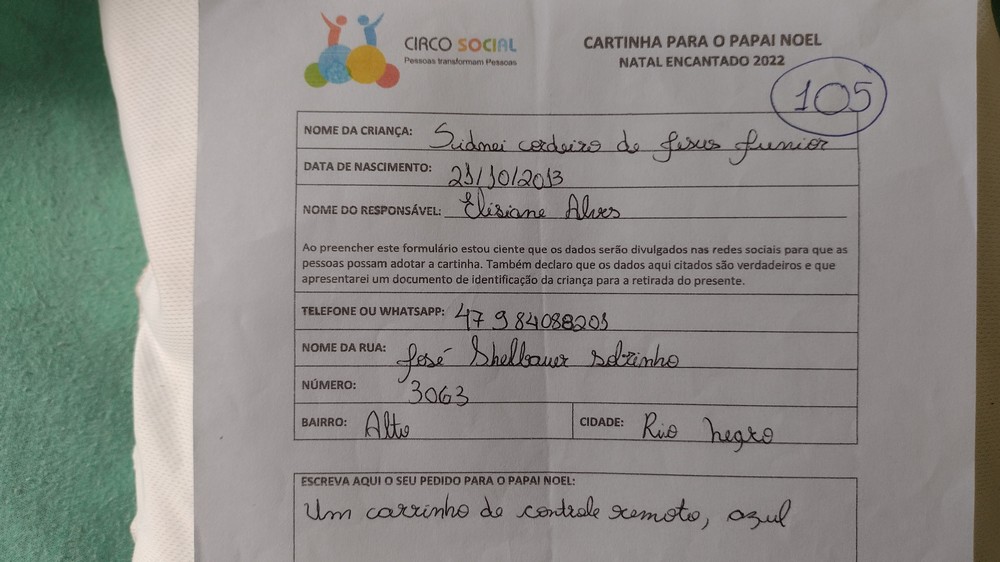 CIRCO SOCIAL
Pessoas transformam Pessoas
CARTINHA PARA O PAPAI NOEL
NATAL ENCANTADO 2022
105
NOME DA CRIANÇA: Sidnei cordeiro de Jesus Junior
DATA DE NASCIMENTO: 21/10/2013
NOME DO RESPONSÁVEL: Elisiane Alves
Ao preencher este formulário estou ciente que os dados serão divulgados nas redes sociais para que as
pessoas possam adotar a cartinha. Também declaro que os dados aqui citados são verdadeiros e que
apresentarei um documento de identificação da criança para a retirada do presente.
TELEFONE OU WHATSAPP: 47 9 84088201
NOME DA RUA: José Shelbauer sobrinho
NÚMERO: 3063
BAIRRO: Alto CIDADE: Rio negro
ESCREVA AQUI O SEU PEDIDO PARA O PAPAI NOEL:
Um carrinho de controle remoto, azul